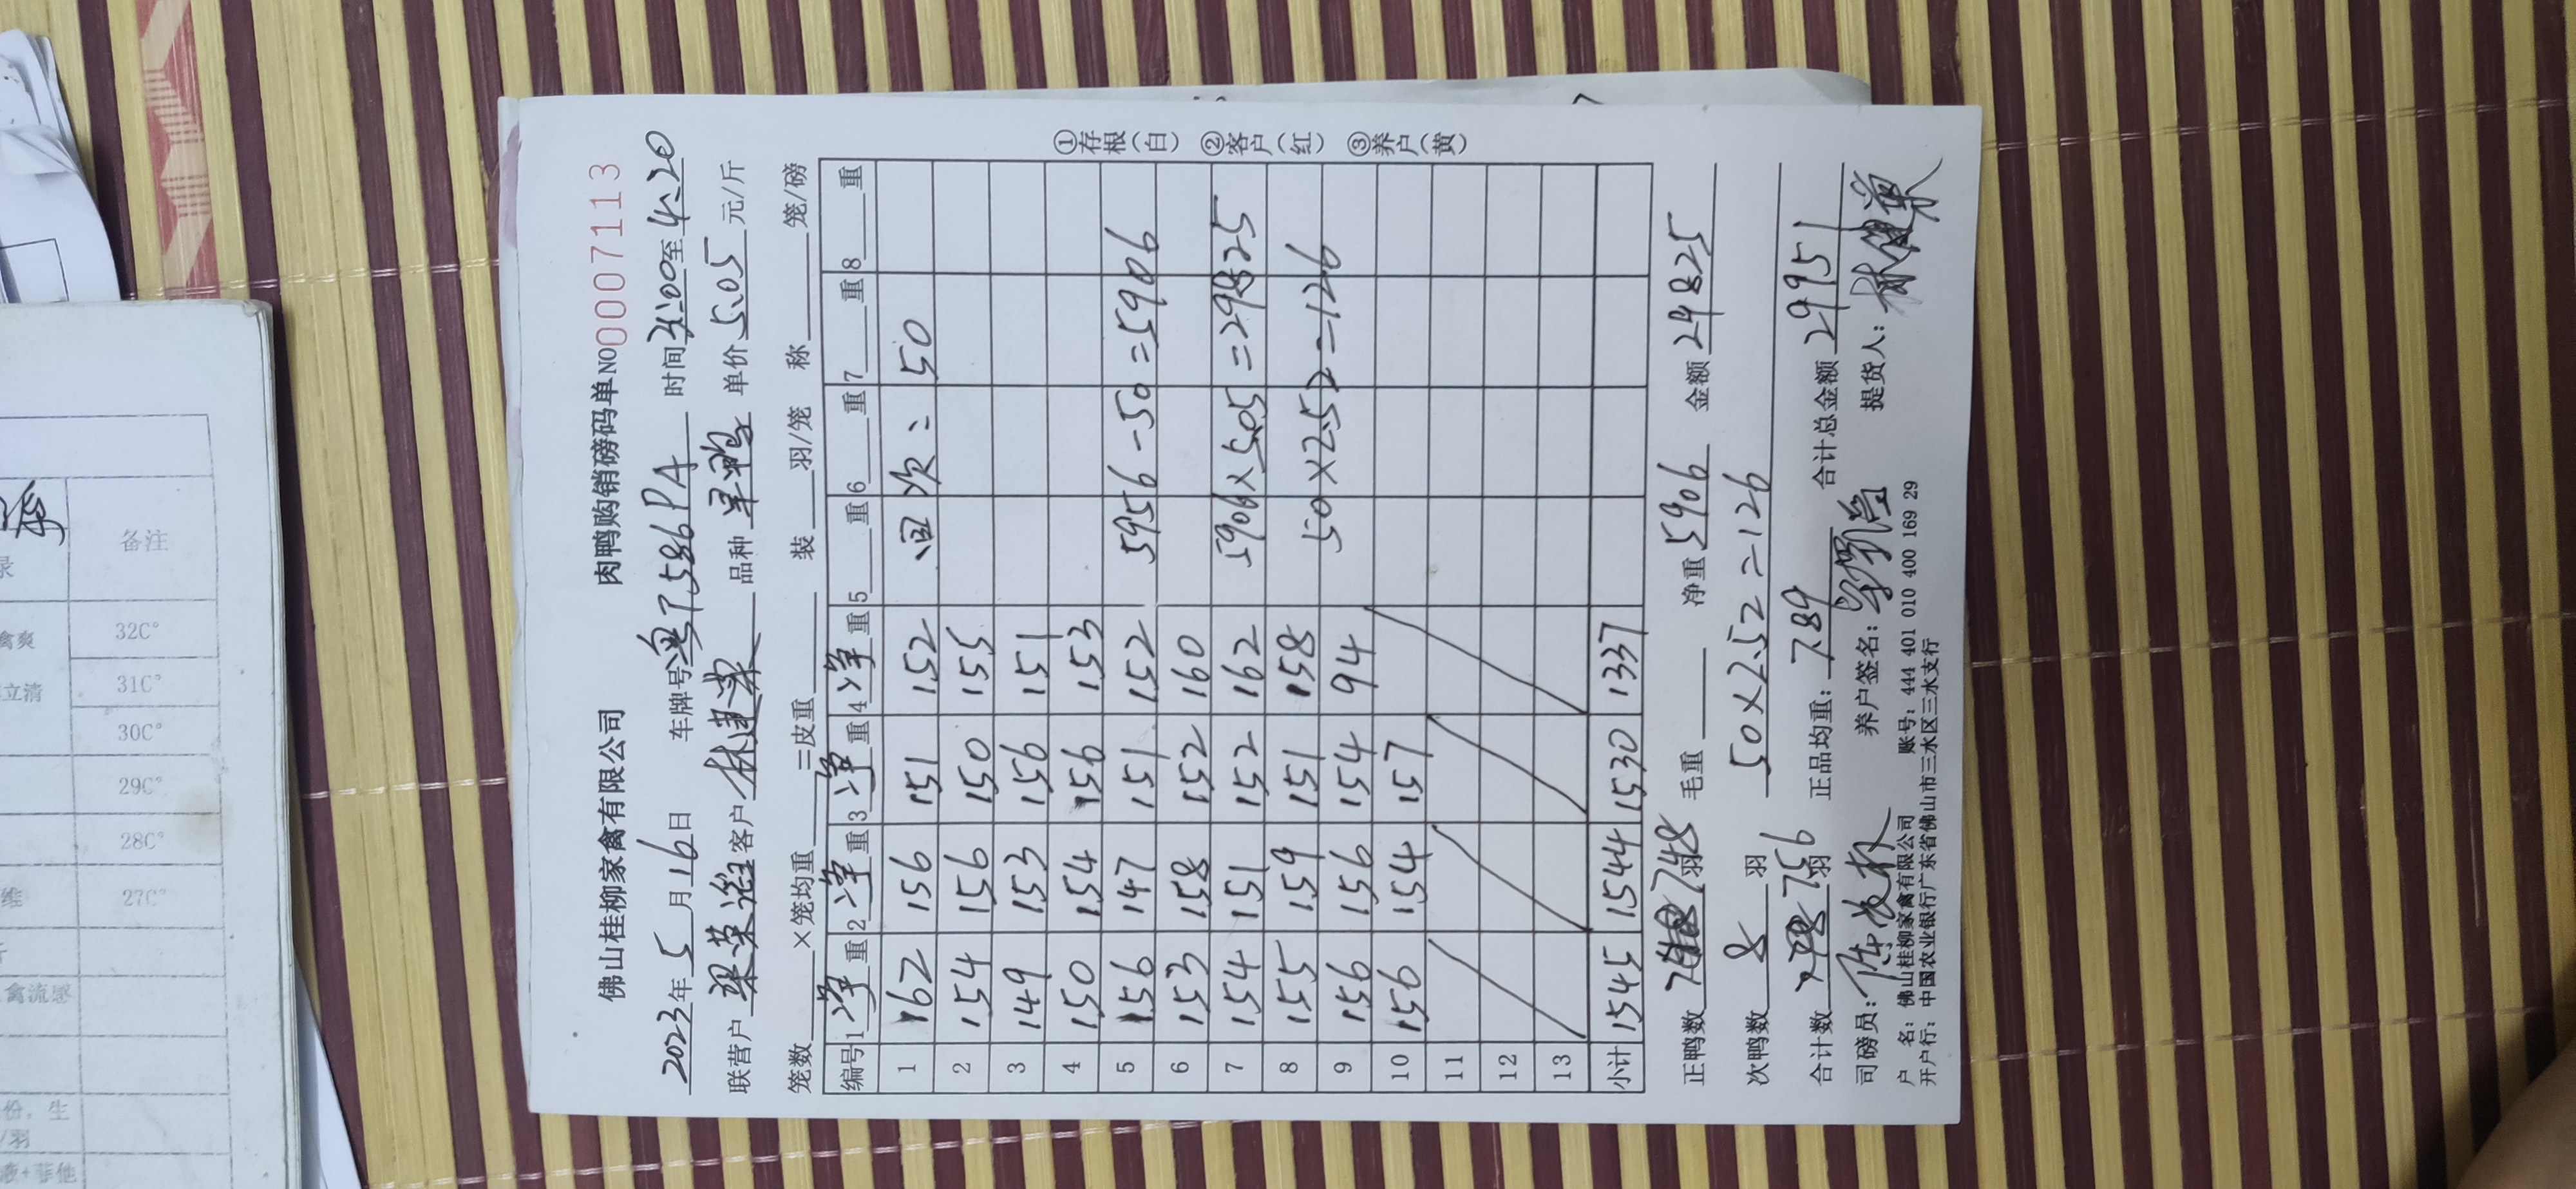 佛山桂柳家禽有限公司 肉鸭购销磅码单 NO 0007113
2023年5月16日 车牌号粤T586PA 时间3:00至4:20
联营户 客户林建荣 品种 单价5.05元/斤
笼数 ×笼均重 =皮重 装 羽/笼 称 笼/磅
编号 1净重 2净重 3净重 4净重 5 重 6 重 7 重 8 重
1 162 156 151 152 回次: 50
2 154 156 150 155
3 149 153 156 151
4 150 154 156 153
5 156 147 151 152 5956-50=5906
6 153 158 152 160
7 154 151 152 162 5906×5.05=29825
8 155 159 151 158
9 156 156 154 94 50×2.52=126
10 156 154 157
11
12
13
小计 1545 1544 1530 1337
正鸭数 748羽 毛重 净重5906 金额29825
次鸭数 8 羽 50×2.52=126
合计数 756羽 正品均重:7.89 合计总金额29951
司磅员: 养户签名: 提货人:
户 名:佛山桂柳家禽有限公司 账号:444 401 010 400 169 29
开户行:中国农业银行广东省佛山市三水区三水支行
①存根(白) ②客户(红) ③养户(黄)
备注
录
32C°
禽爽
31C°
立清
30C°
29C°
28C°
27C°
维
禽流感
份,生
/羽